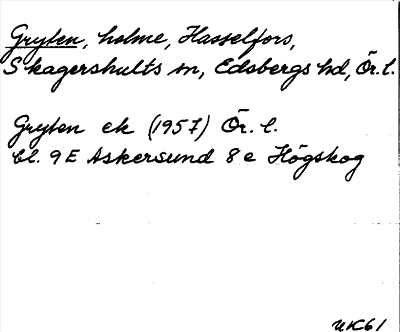 Gryten, holme, Hasselfors,
Skagershults sn, Edsbergs hd, Ör. l.
Gryten ek (1957) Ör. l.
bl. 9E Askersund 8 e Högskog
UK61